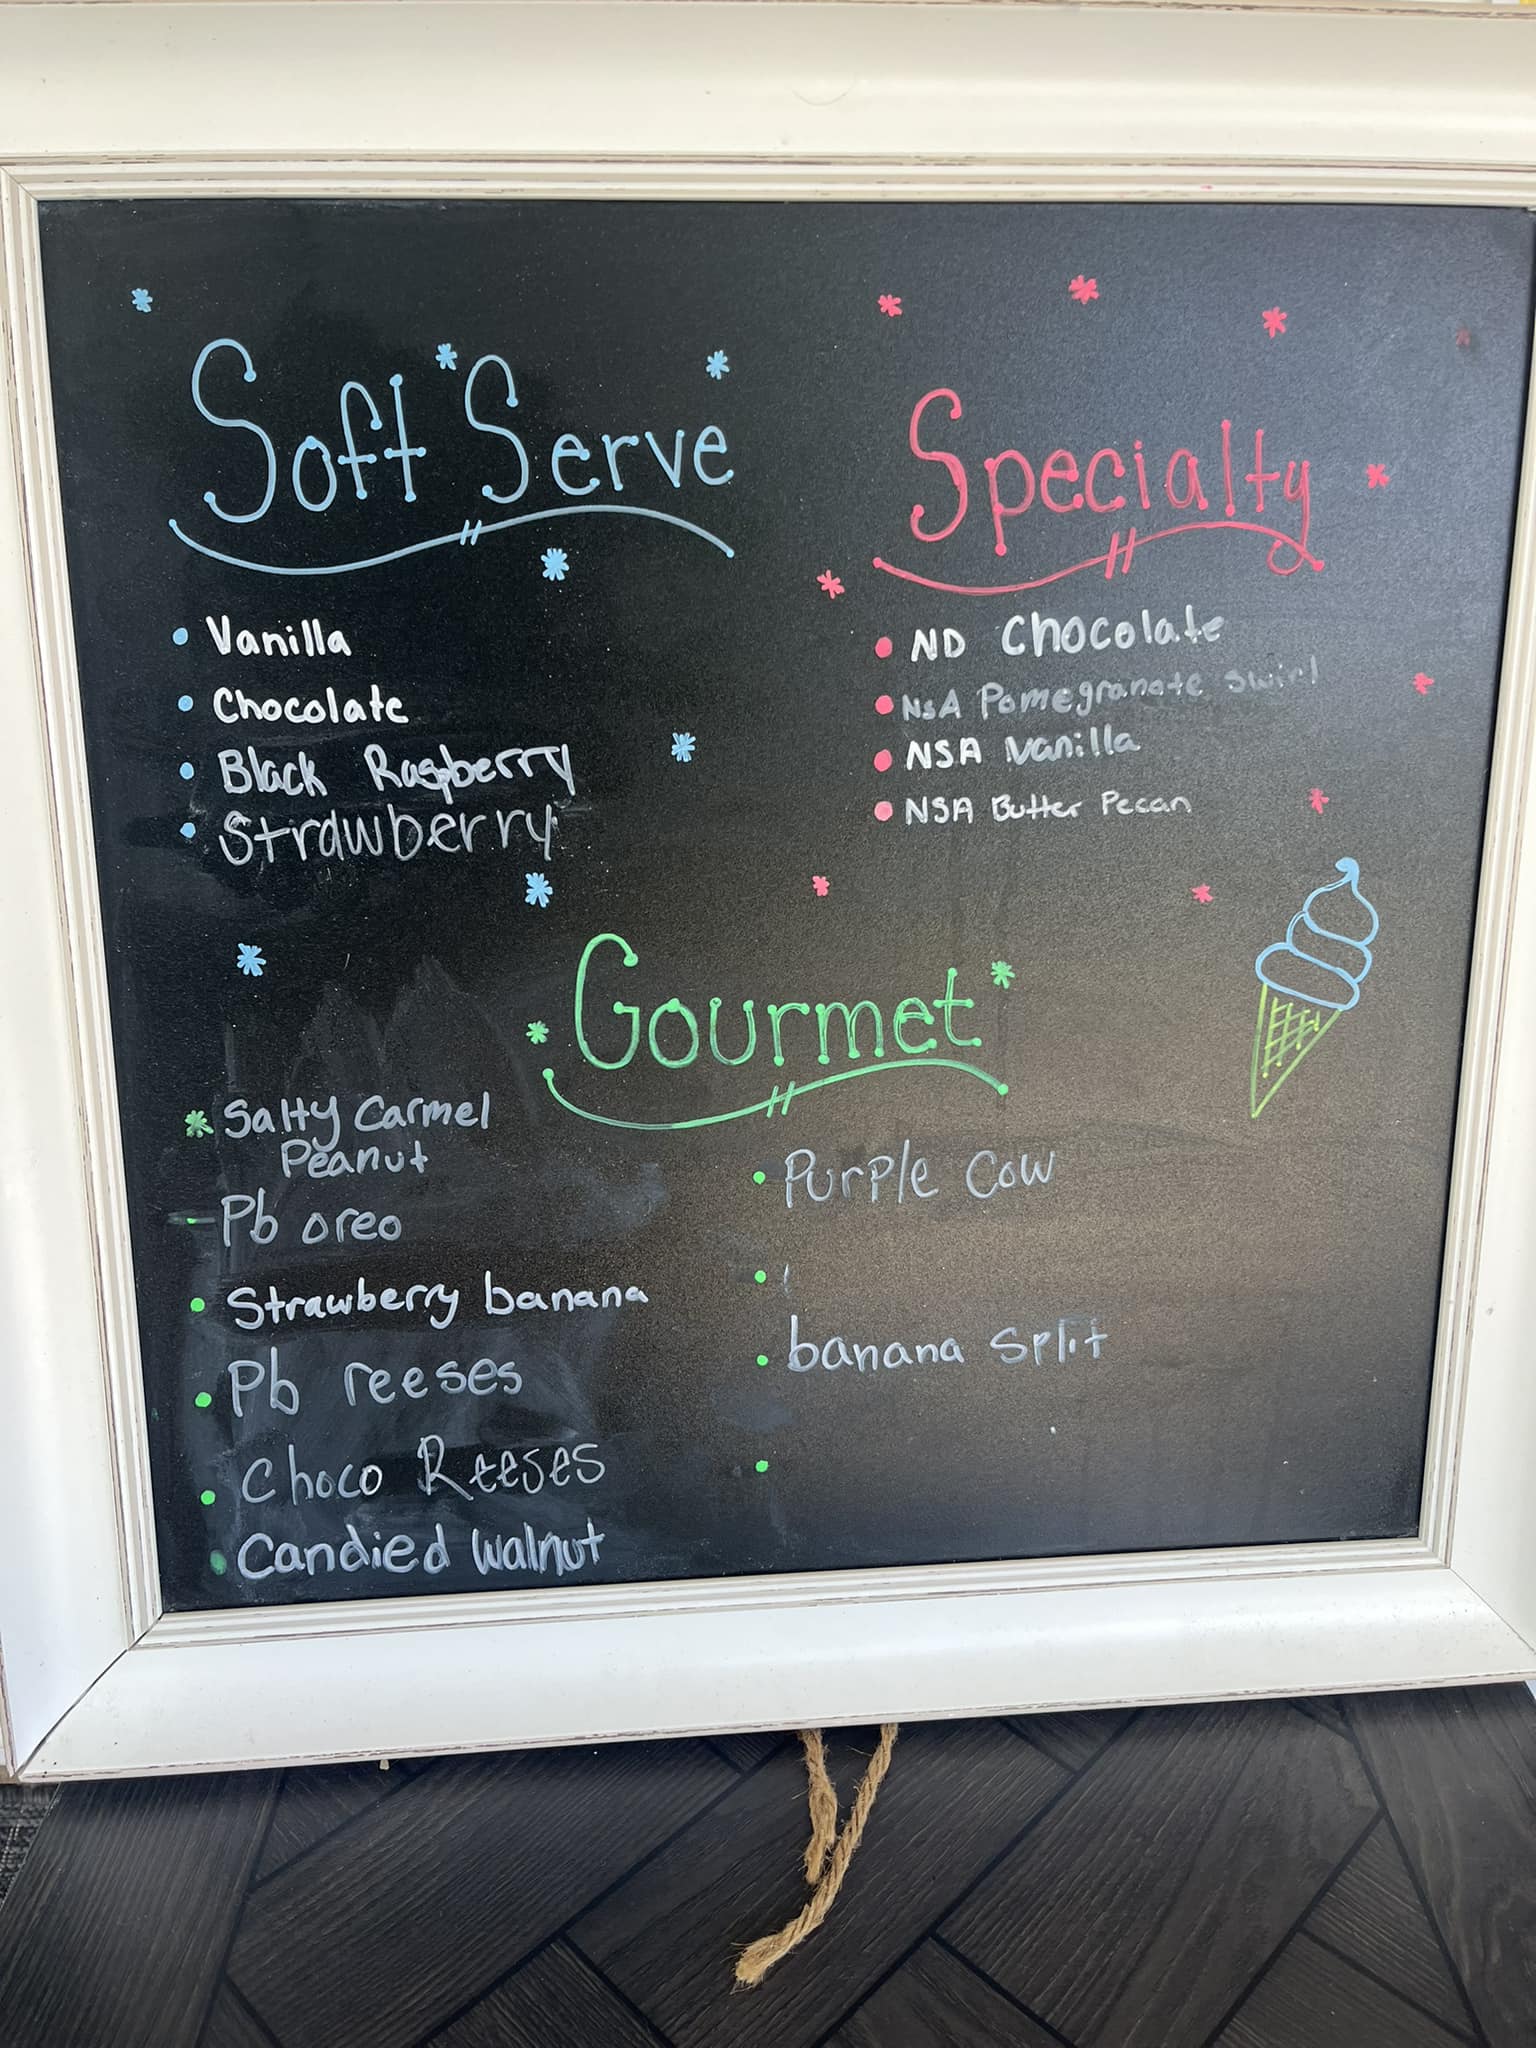 Soft Serve
Vanilla
Chocolate
Black Raspberry
Strawberry
Specialty
ND Chocolate
NSA Pomegranate swirl
NSA Vanilla
NSA Butter Pecan
Gourmet
Salty Carmel
Peanut
Pb oreo
Strawberry banana
Pb reeses
Choco Reeses
Candied walnut
Purple Cow
banana split